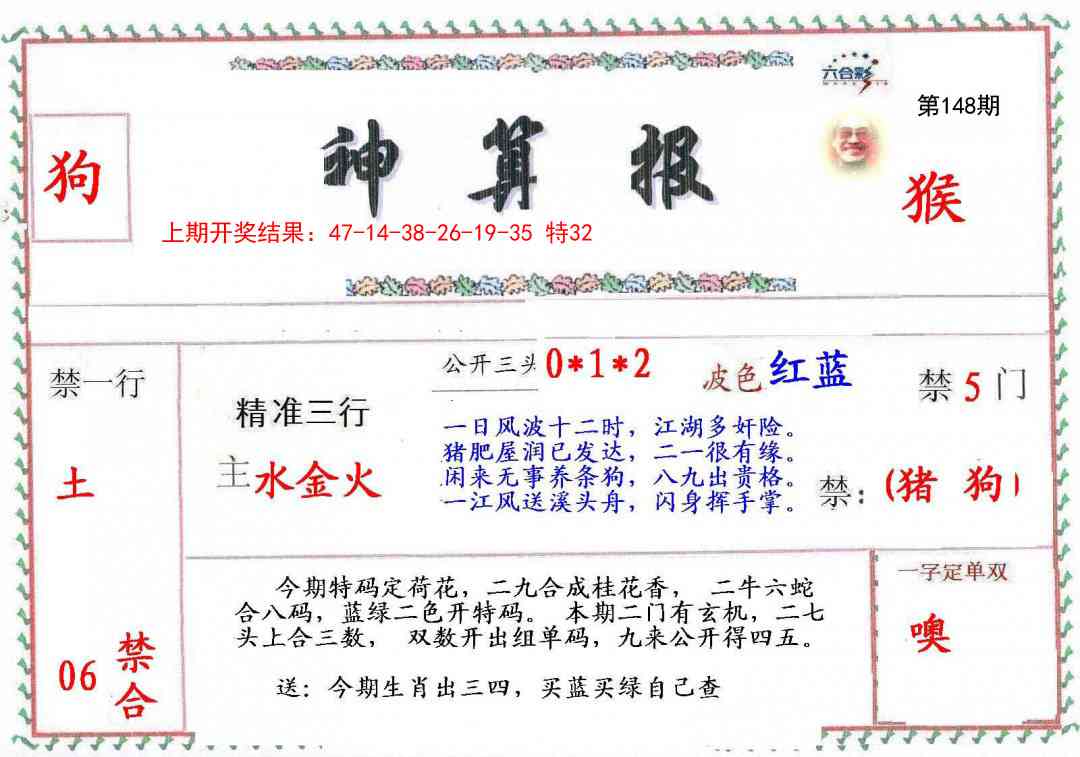 六合彩
第148期
狗
神算报
猴
上期开奖结果：47-14-38-26-19-35 特32
禁一行
土
06
禁合
精准三行
主水金火
公开三头 0*1*2
波色 红蓝
一日风波十二时，江湖多奸险。
猪肥屋润已发达，二一很有缘。
闲来无事养条狗，八九出贵格。
一江风送溪头舟，闪身挥手掌。
禁5门
禁：（猪 狗）
今期特码定荷花，二九合成桂花香， 二牛六蛇
合八码，蓝绿二色开特码。 本期二门有玄机，二七
头上合三数， 双数开出组单码，九来公开得四五。
送：今期生肖出三四，买蓝买绿自己查
一字定单双
噢